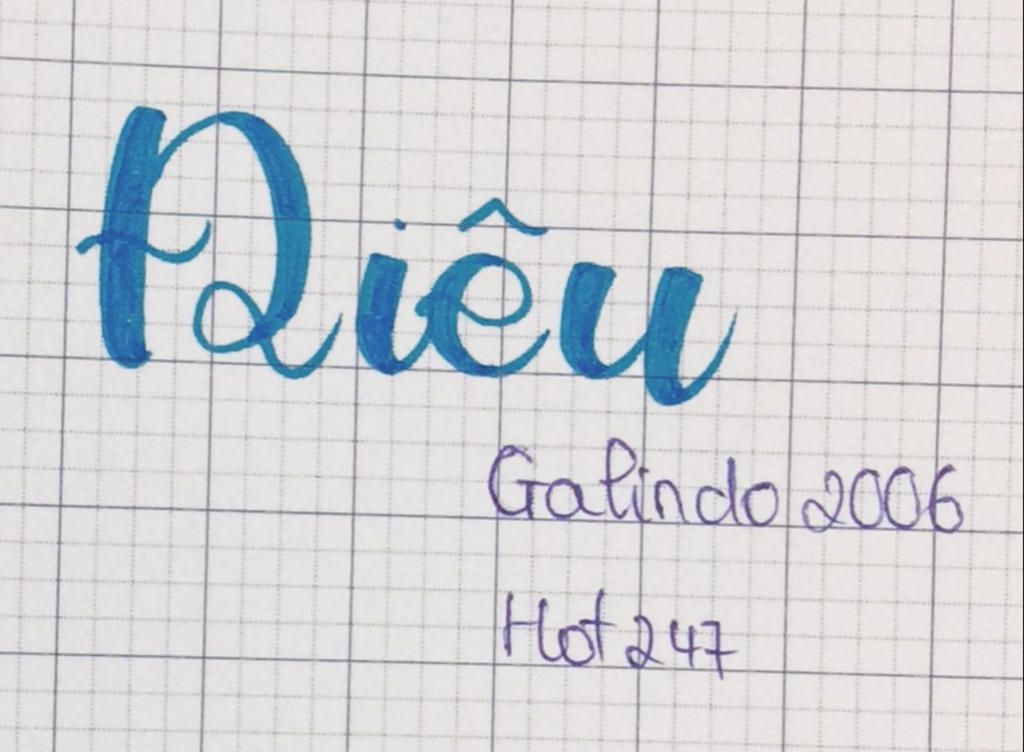 Điêu
Galindo 2006
Hot 247